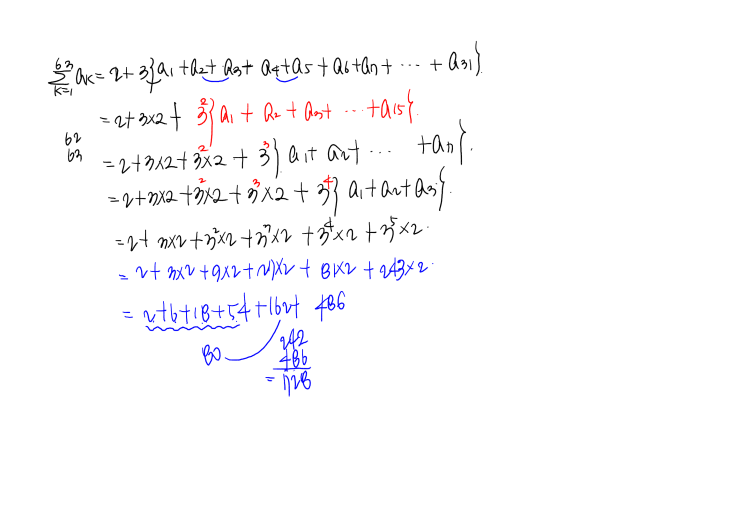 \sum_{k=1}^{63} a_k = 2 + 3\{a_1 + a_2 + a_3 + a_4 + a_5 + a_6 + a_7 + \cdots + a_{31}\}.
= 2 + 3×2 + 3^2\{a_1 + a_2 + a_3 + \cdots + a_{15}\}.
62
63
= 2 + 3×2 + 3^2×2 + 3^3\{a_1 + a_2 + \cdots + a_7\}.
= 2 + 3×2 + 3^2×2 + 3^3×2 + 3^4\{a_1 + a_2 + a_3\}.
= 2 + 3×2 + 3^2×2 + 3^3×2 + 3^4×2 + 3^5×2.
= 2 + 3×2 + 9×2 + 27×2 + 81×2 + 243×2.
= 2 + 6 + 18 + 54 + 162 + 486
80
242
486
= 728